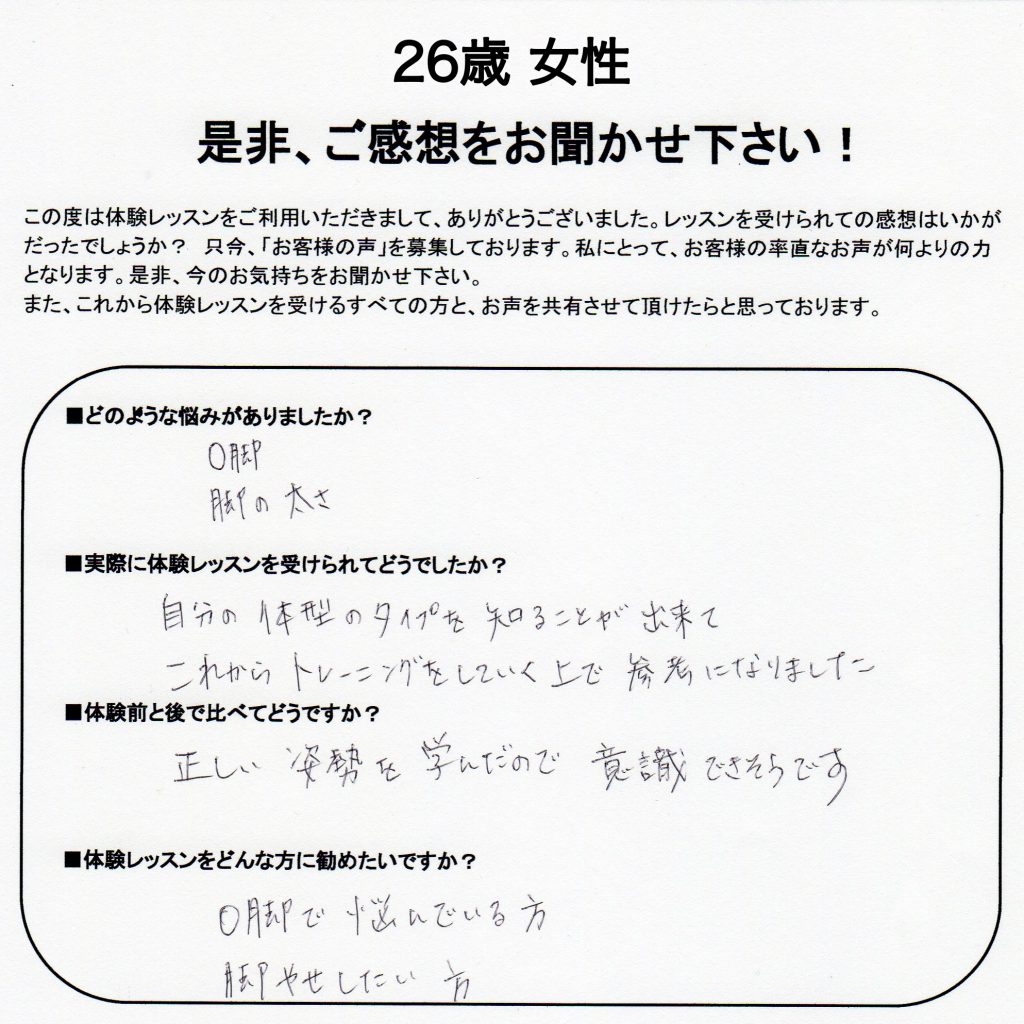 26歳 女性
是非、ご感想をお聞かせ下さい！
この度は体験レッスンをご利用いただきまして、ありがとうございました。レッスンを受けられての感想はいかが
だったでしょうか？　只今、「お客様の声」を募集しております。私にとって、お客様の率直なお声が何よりの力
となります。是非、今のお気持ちをお聞かせ下さい。
また、これから体験レッスンを受けるすべての方と、お声を共有させて頂けたらと思っております。
■どのような悩みがありましたか？
O脚
脚の太さ
■実際に体験レッスンを受けられてどうでしたか？
自分の体型のタイプを知ることが出来て
これからトレーニングをしていく上で参考になりました
■体験前と後で比べてどうですか？
正しい姿勢を学んだので意識できそうです
■体験レッスンをどんな方に勧めたいですか？
O脚で悩んでいる方
脚やせしたい方